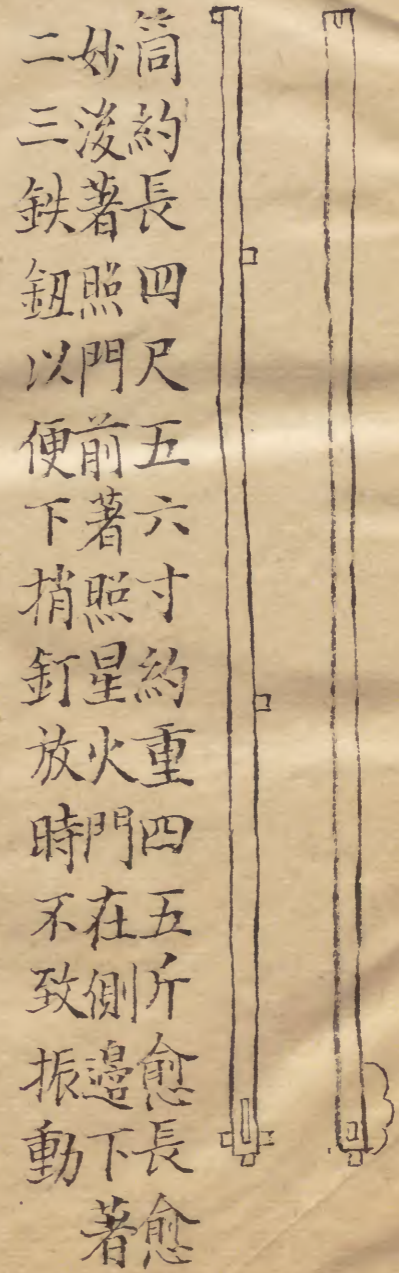 筒約長四尺五六寸約重四五斤愈長愈
妙後著照門前著照星火門在側邉下著
二三鉄鈕以便下捎釘放時不致振動